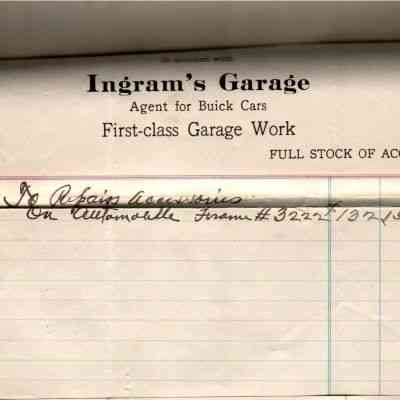 In account with
Ingram's Garage
Agent for Buick Cars
First-class Garage Work
FULL STOCK OF AC
To Repairs Accessories
On Automobile Frame # 3222 132